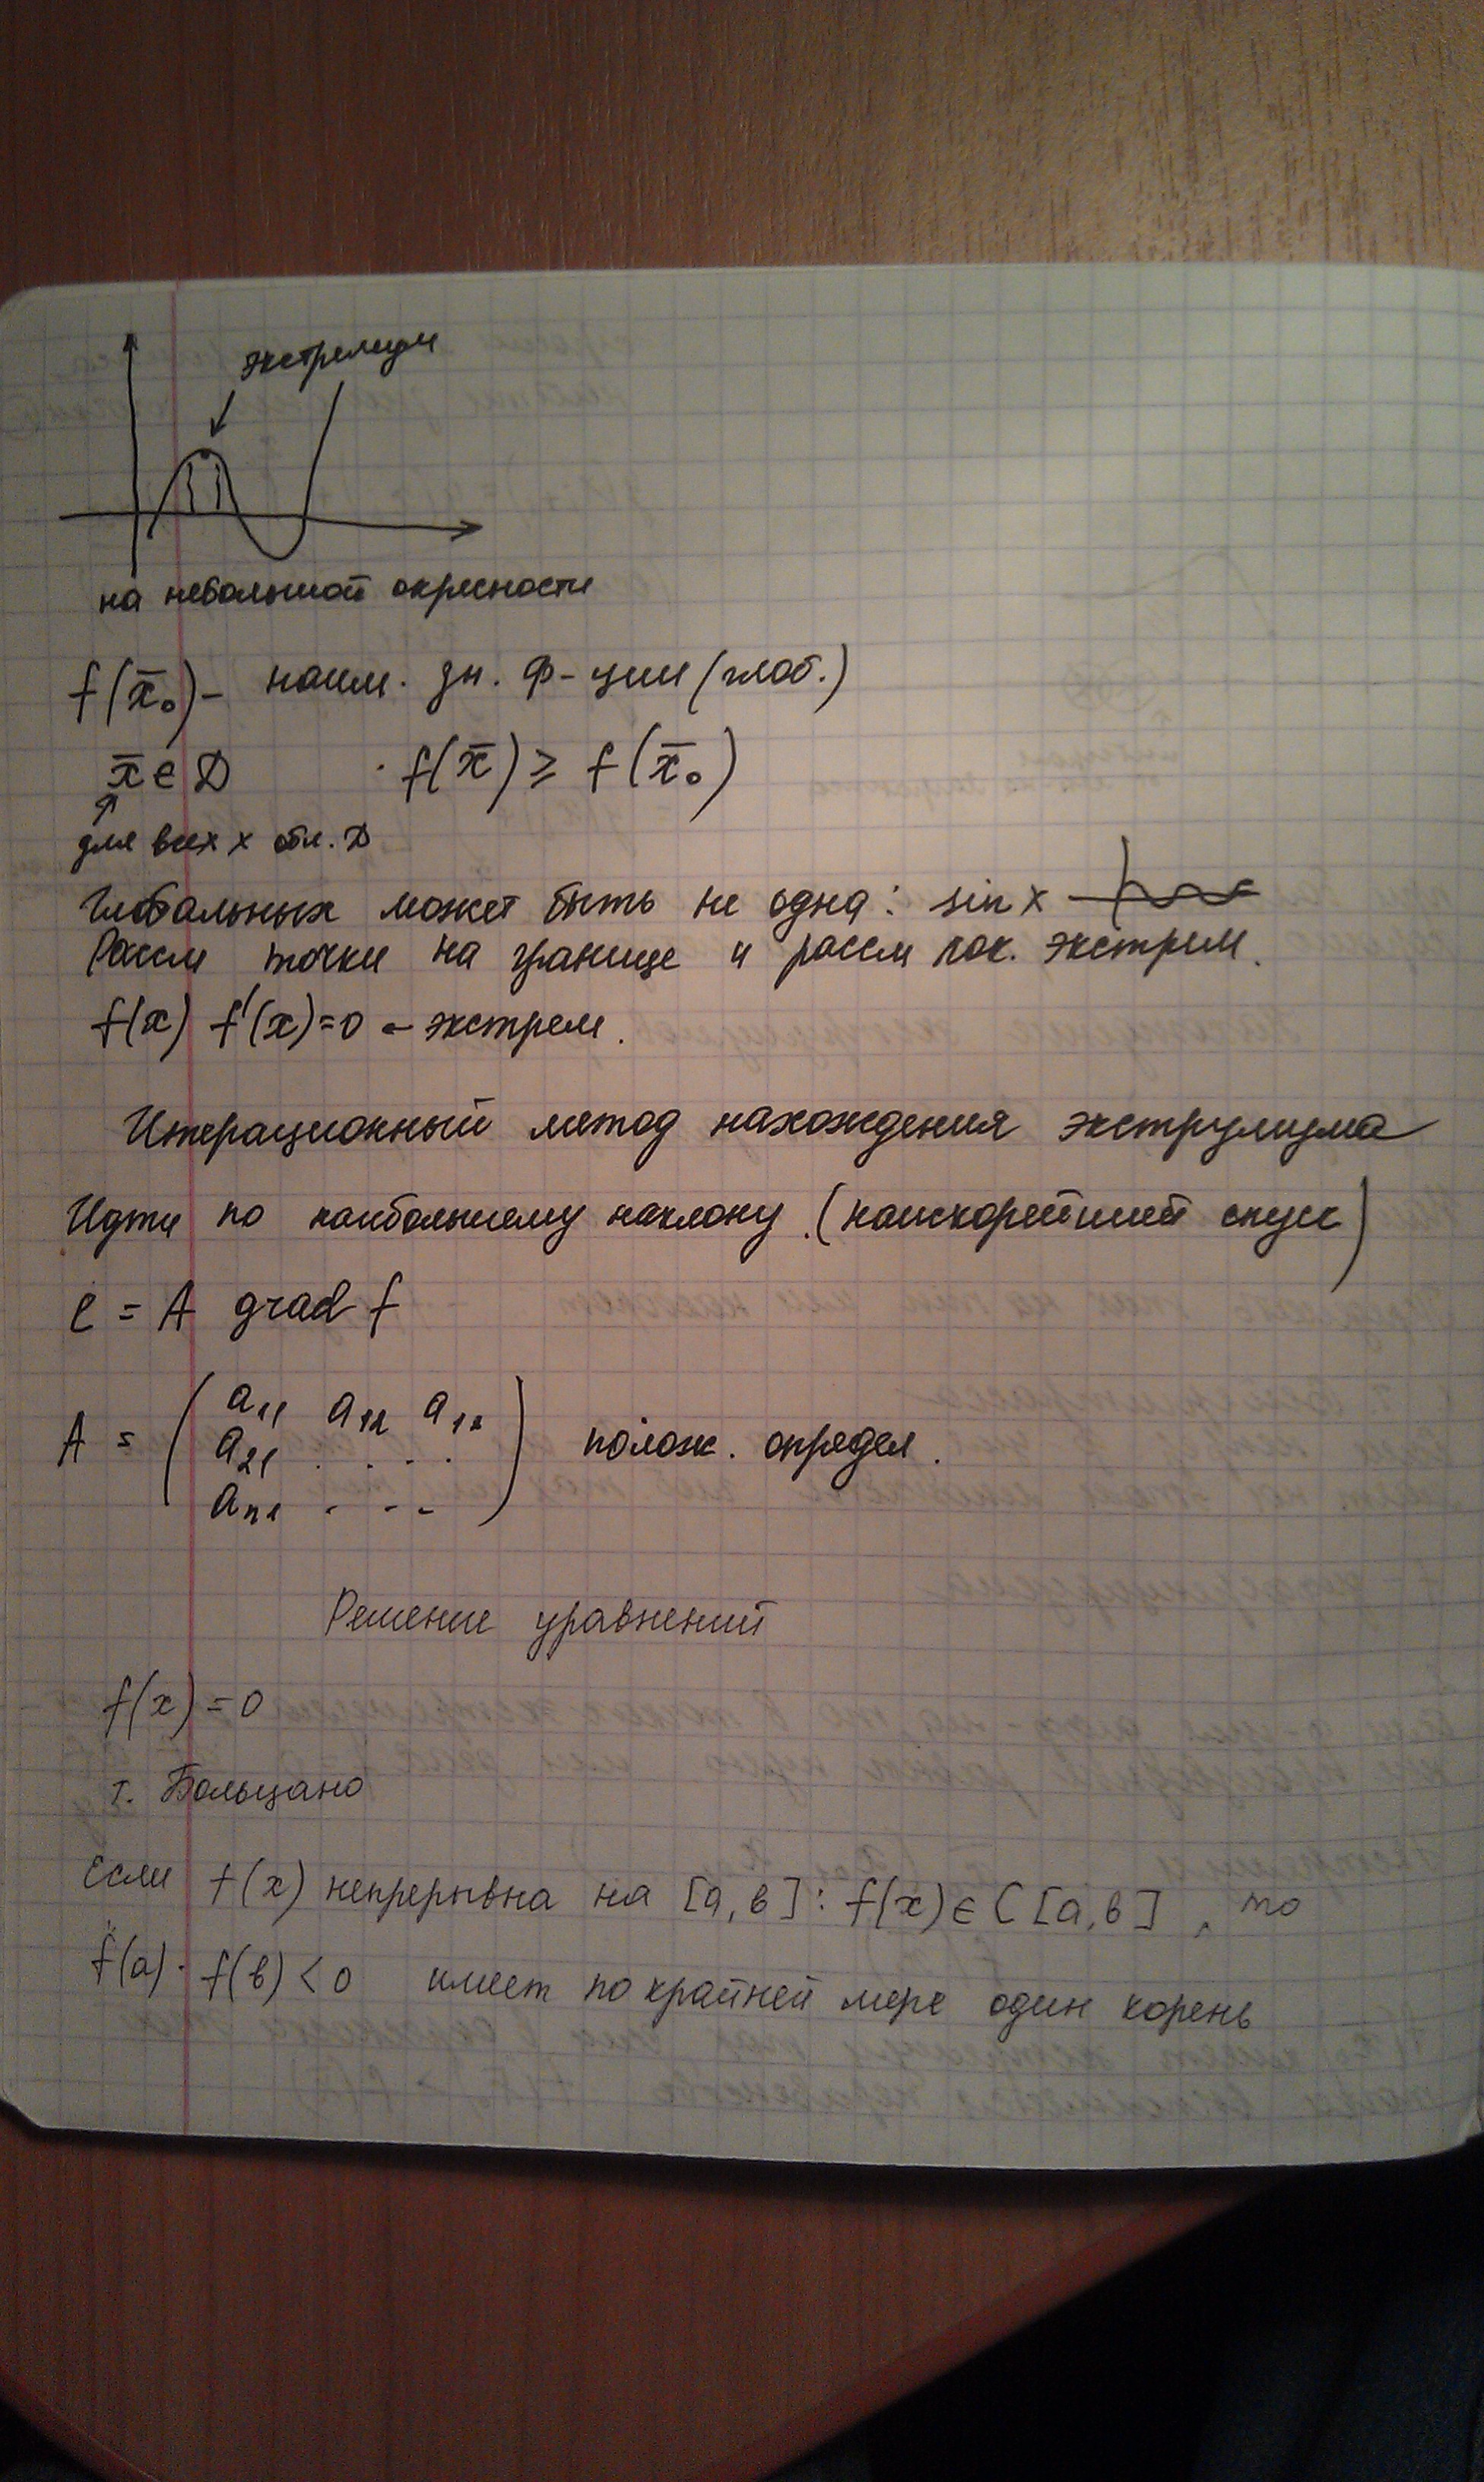 экстремум
на небольшой окресности
f(x̄₀) - наим. зн. ф-ции (глоб.)
x̄ ∈ D · f(x̄) ≥ f(x̄₀)
для всех x обл. D
Глобальных может быть не одна: sin x
Рассм точки на границе и рассм лок. экстрем.
f(x) f'(x)=0 - экстрем.
Итерационный метод нахождения экструмума
Идти по наибольшему наклону. (наискорейший спуск)
ℓ = A grad f
A = ( a₁₁ a₁₂ a₁₂
a₂₁ . . . .
aₙ₁ . . . ) полож. определ.
Решение уравнений
f(x) = 0
т. Больцано
Если f(x) непрерывна на [a,b]: f(x) ∈ C [a,b], то
f(a) · f(b) < 0 имеет по крайней мере один корень